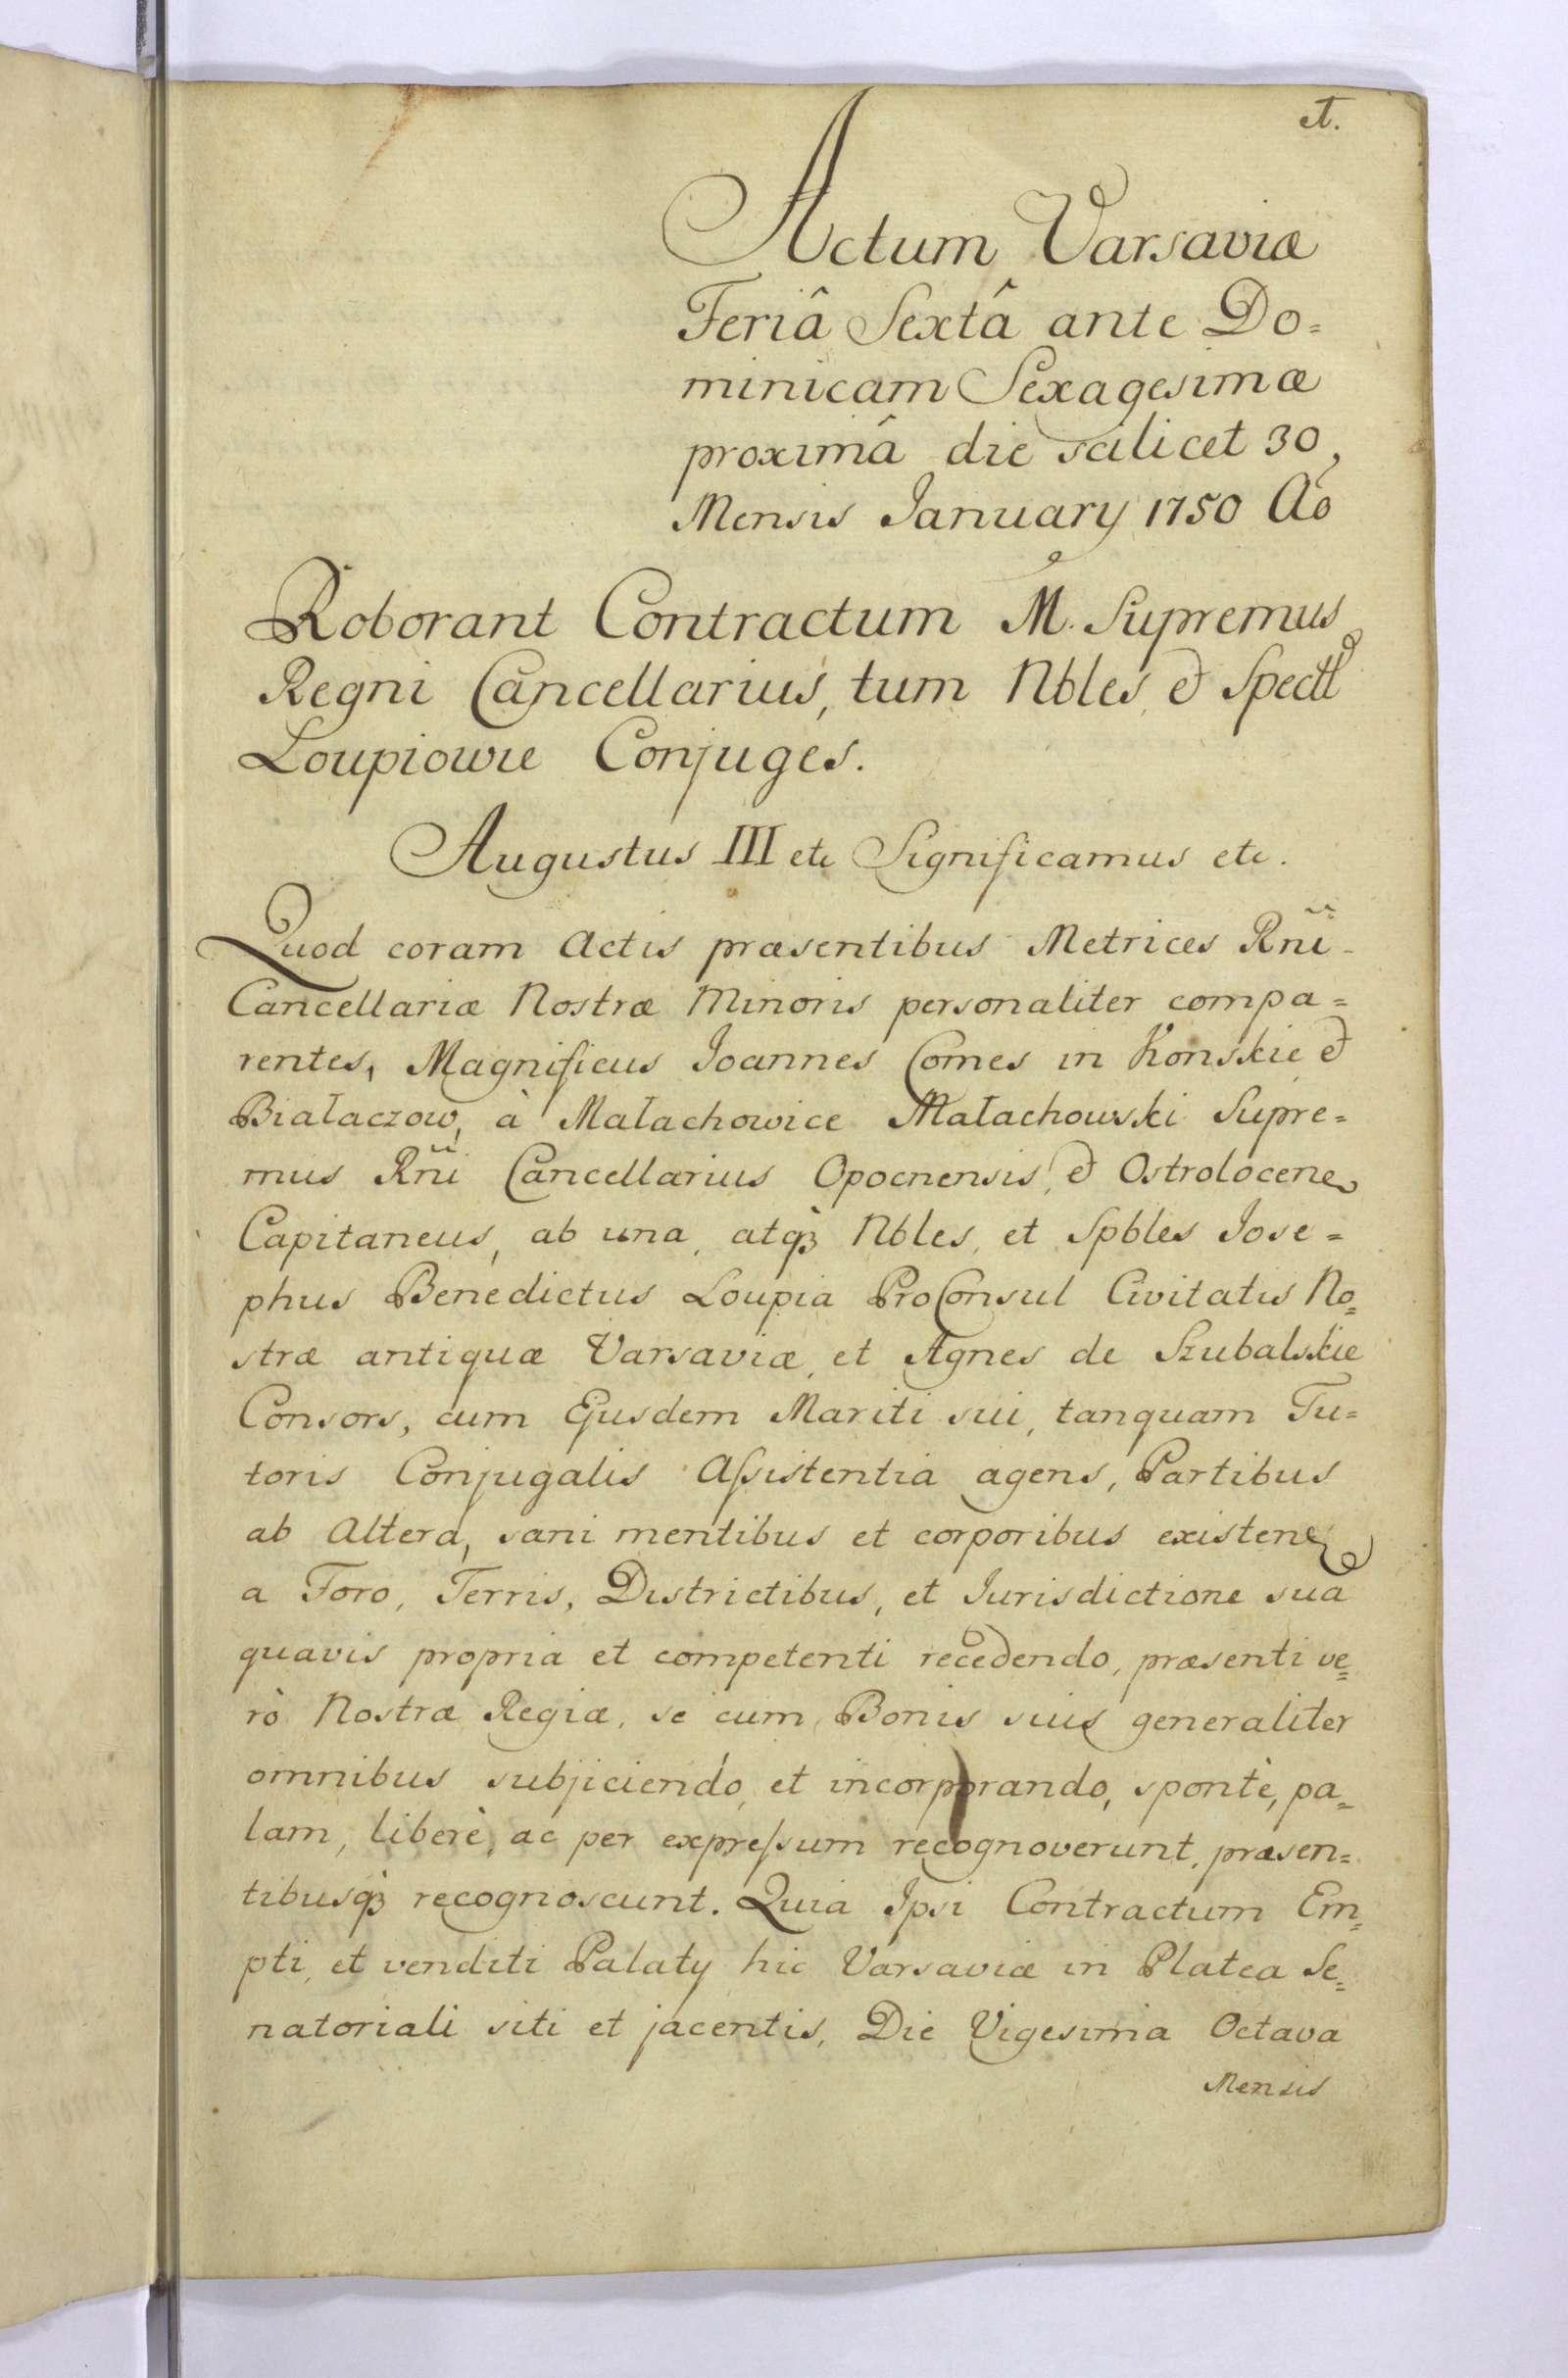 A.
Actum Varsaviæ
Feriâ Sextâ ante Do=
minicam Sexagesimæ
proximâ die scilicet 30,
Mensis January 1750 Ao
Roborant Contractum M. Supremus
Regni Cancellarius, tum Nbles, & Spectl
Loupiowie Conjuges.
Augustus III etc Significamus etc.
Quod coram Actis præsentibus Metrices Rñi
Cancellariæ Nostræ Minoris personaliter compa=
rentes, Magnificus Joannes Comes in Konskie &
Białaczow, à Małachowice Małachowski Supre=
mus Rñi Cancellarius Opocnensis, & Ostrolocenes
Capitaneus, ab una, atqꝫ Nbles, et Spbles Jose=
phus Benedictus Loupia ProConsul Civitatis No=
stræ antiquæ Varsaviæ, et Agnes de Szubalskie
Consors, cum Ejusdem Mariti sui, tanquam Tu=
toris Conjugalis Aſsistentia agens, Partibus
ab Altera, sani mentibus et corporibus existenes
a Foro, Terris, Districtibus, et Jurisdictione sua
quavis propria et competenti recedendo, præsenti ve=
rò Nostræ Regiæ, se cum Bonis suis generaliter
omnibus subjiciendo, et incorporando, spontè, pa=
lam, liberè, ac per expreſsum recognoverunt, præsen=
tibusqꝫ recognoscunt. Quia Ipsi Contractum Em=
pti, et venditi Palaty hic Varsaviæ in Platea Se=
natoriali siti et jacentis, Die Vigesima Octava
Mensis